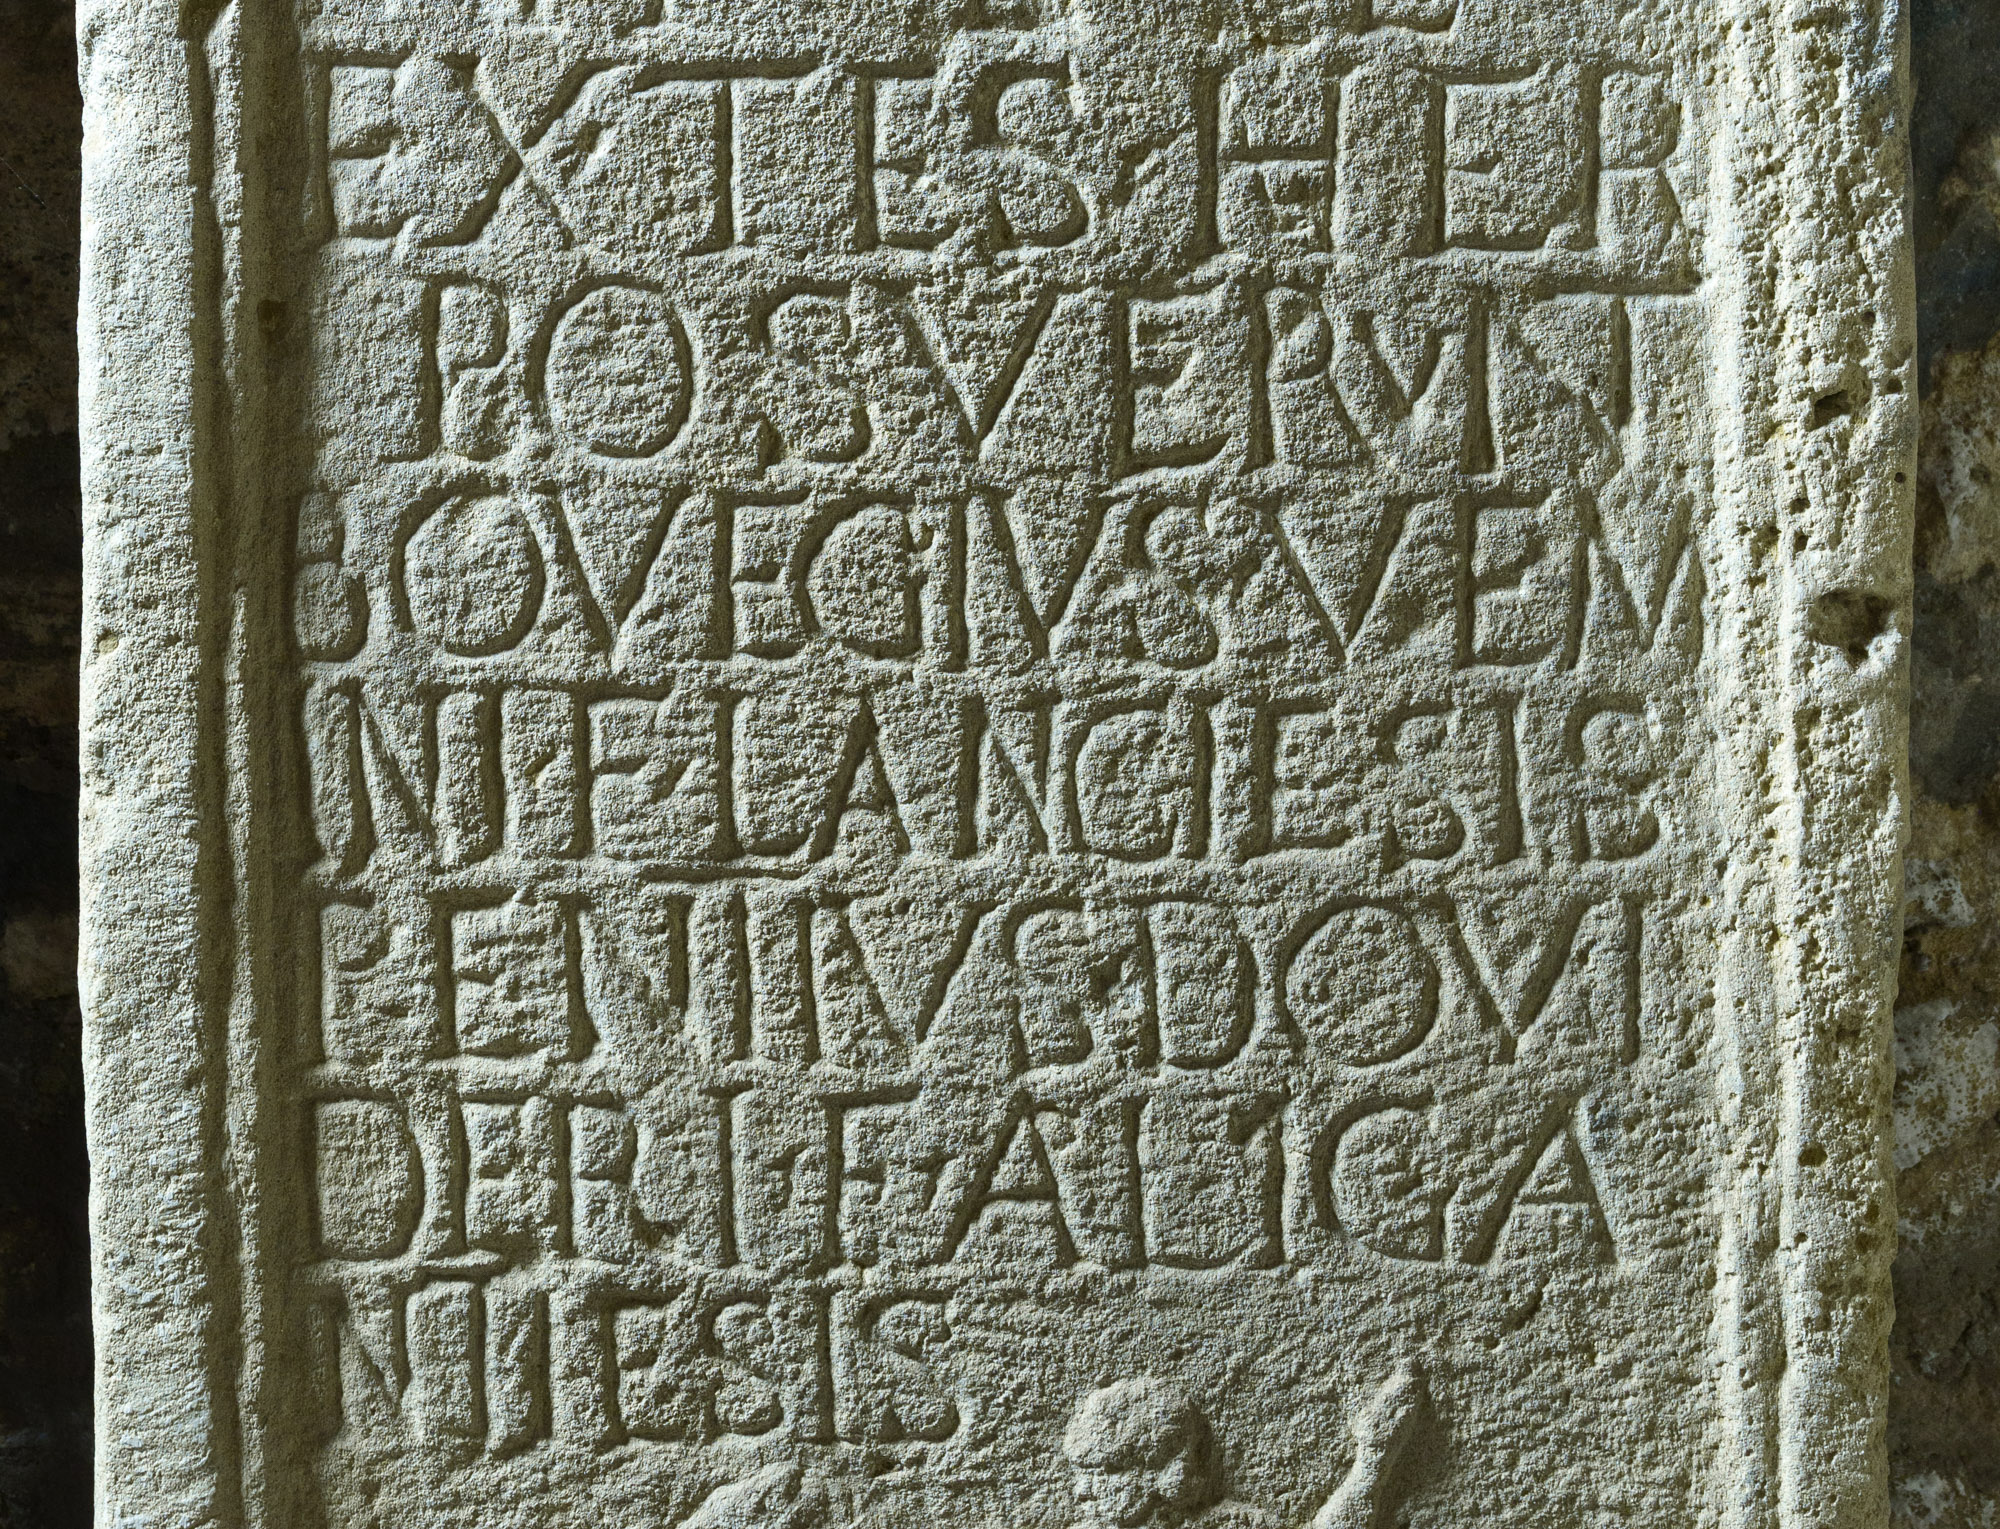 EX TES HER
POSVERVNT
BOVEGIVS VEM
INI F LANCIESIS
PENTIVS DOVI
DERI F ALIGA
NTIESIS